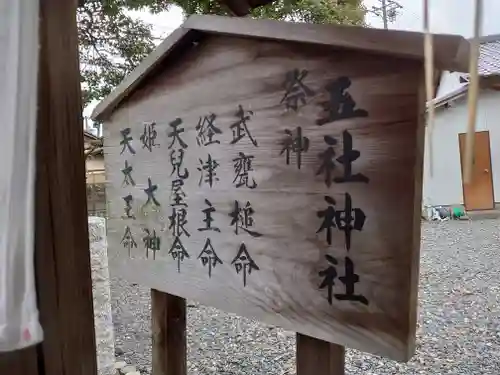 五社神社
祭神
武甕槌命
経津主命
天兒屋根命
姫大神
天太玉命